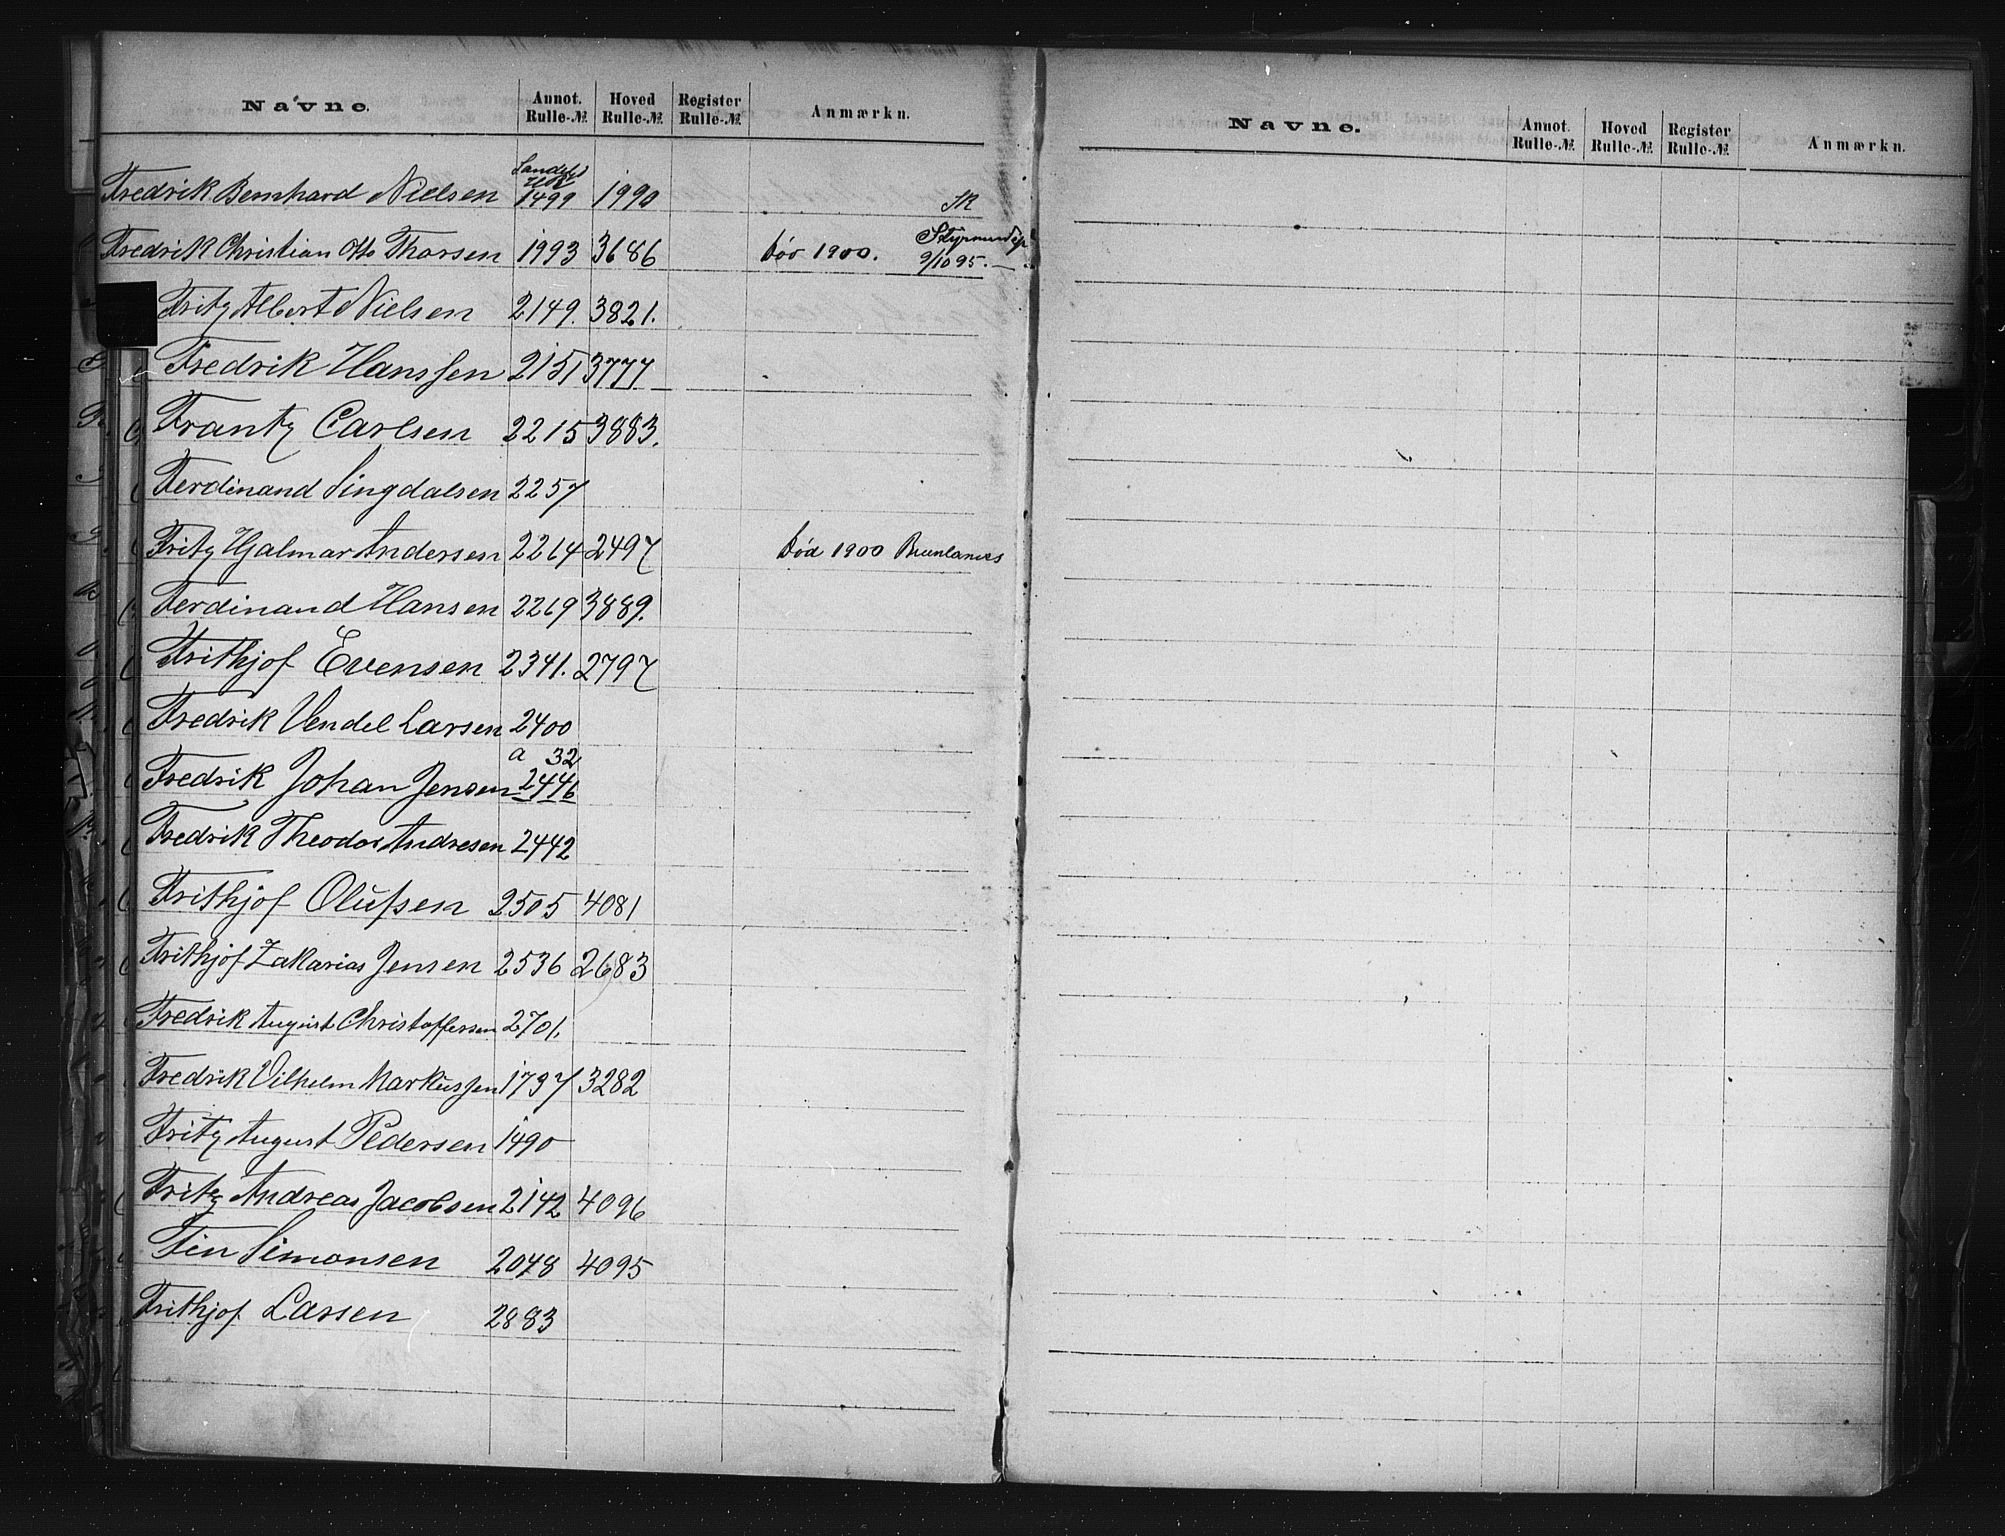 Navne. Annot. Rulle-№. Hoved Rulle-№. Register Rulle-№. Anmærkn.
Fredrik Bernhard Nielsen 1499 1990
Fredrik Christian Otto Thorsen 1993 3686 1900. 9/10 95.
Fritz Albert Nielsen 2149. 3821.
Fredrik Hanssen 2151 3777
Frantz Carlsen 2215 3883.
Ferdinand Singdalsen 2257
Fritz Hjalmar Andersen 2264 2497 død 1900 Brunlanæs
Ferdinand Hansen 2269 3889.
Frithjof Evensen 2341. 2797
Fredrik Vendel Larsen 2400
a 32
Fredrik Johan Jensen 2446
Fredrik Theodor Andresen 2442
Frithjof Olufsen 2505 4081
Frithjof Zakarias Jensen 2536 2683
Fredrik August Christoffersen 2701.
Fredrik Vilhelm Markussen 1797 3282
Fritz August Pedersen 1490
Fritz Andreas Jacobsen 2142 4096
Fin Simonsen 2048 4095
Frithjof Larsen 2883
Navne. Annot. Rulle-№. Hoved Rulle-№. Register Rulle-№. Anmærkn.